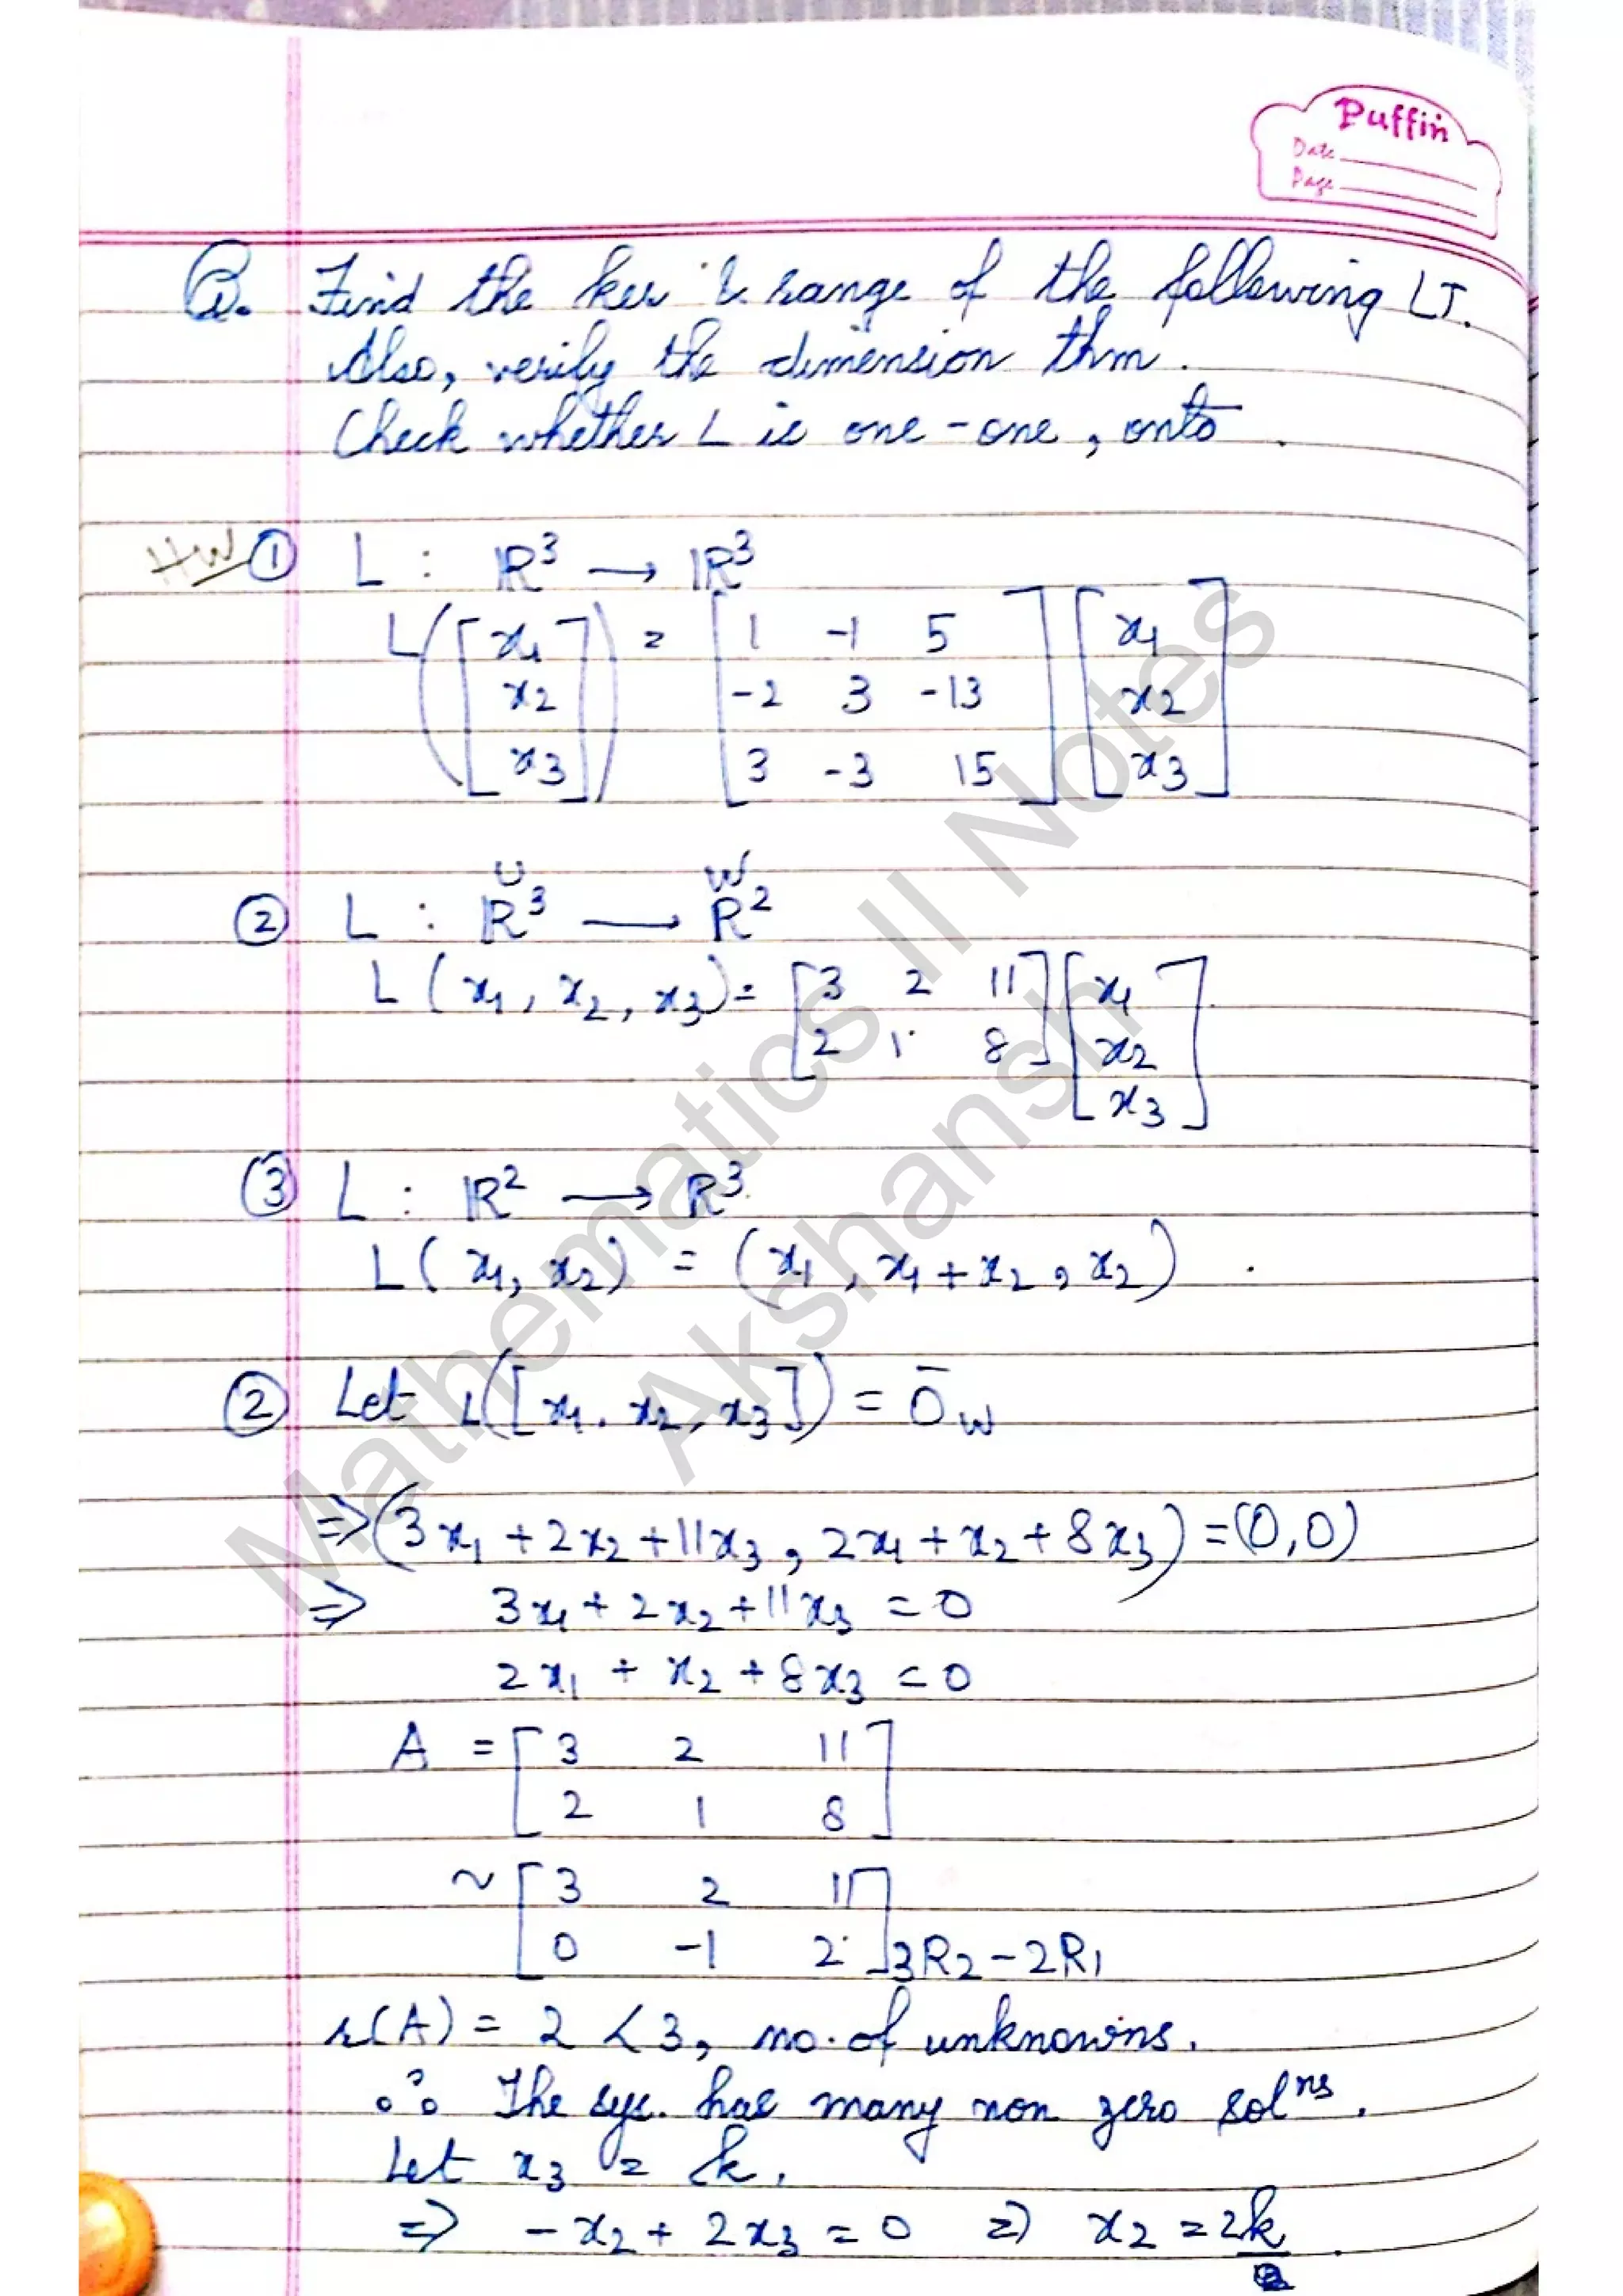 Puffin
Date
Page
Q. Find the ker & range of the following LT.
Also, verify the dimension thm.
Check whether L is one-one, onto.
HW ① L : ℝ³ → ℝ³
L([x₁ x₂ x₃]) = [1 -1 5
-2 3 -13
3 -3 15] [x₁
x₂
x₃]
U W
② L : ℝ³ → ℝ²
L(x₁, x₂, x₃) = [3 2 11
2 1 8] [x₁
x₂
x₃]
③ L : ℝ² → ℝ³
L(x₁, x₂) = (x₁, x₁ + x₂, x₂).
② Let L([x₁, x₂, x₃]) = 0̄w
⇒ (3x₁ + 2x₂ + 11x₃, 2x₁ + x₂ + 8x₃) = (0,0)
⇒ 3x₁ + 2x₂ + 11x₃ = 0
2x₁ + x₂ + 8x₃ = 0
A = [3 2 11
2 1 8]
~ [3 2 11
0 -1 2] 3R₂ - 2R₁
r(A) = 2 < 3, no. of unknowns.
∴ The sys. has many non zero solⁿˢ.
Let x₃ = k.
⇒ -x₂ + 2x₃ = 0 ⇒ x₂ = 2k.
Mathematics II Notes
Akshansh